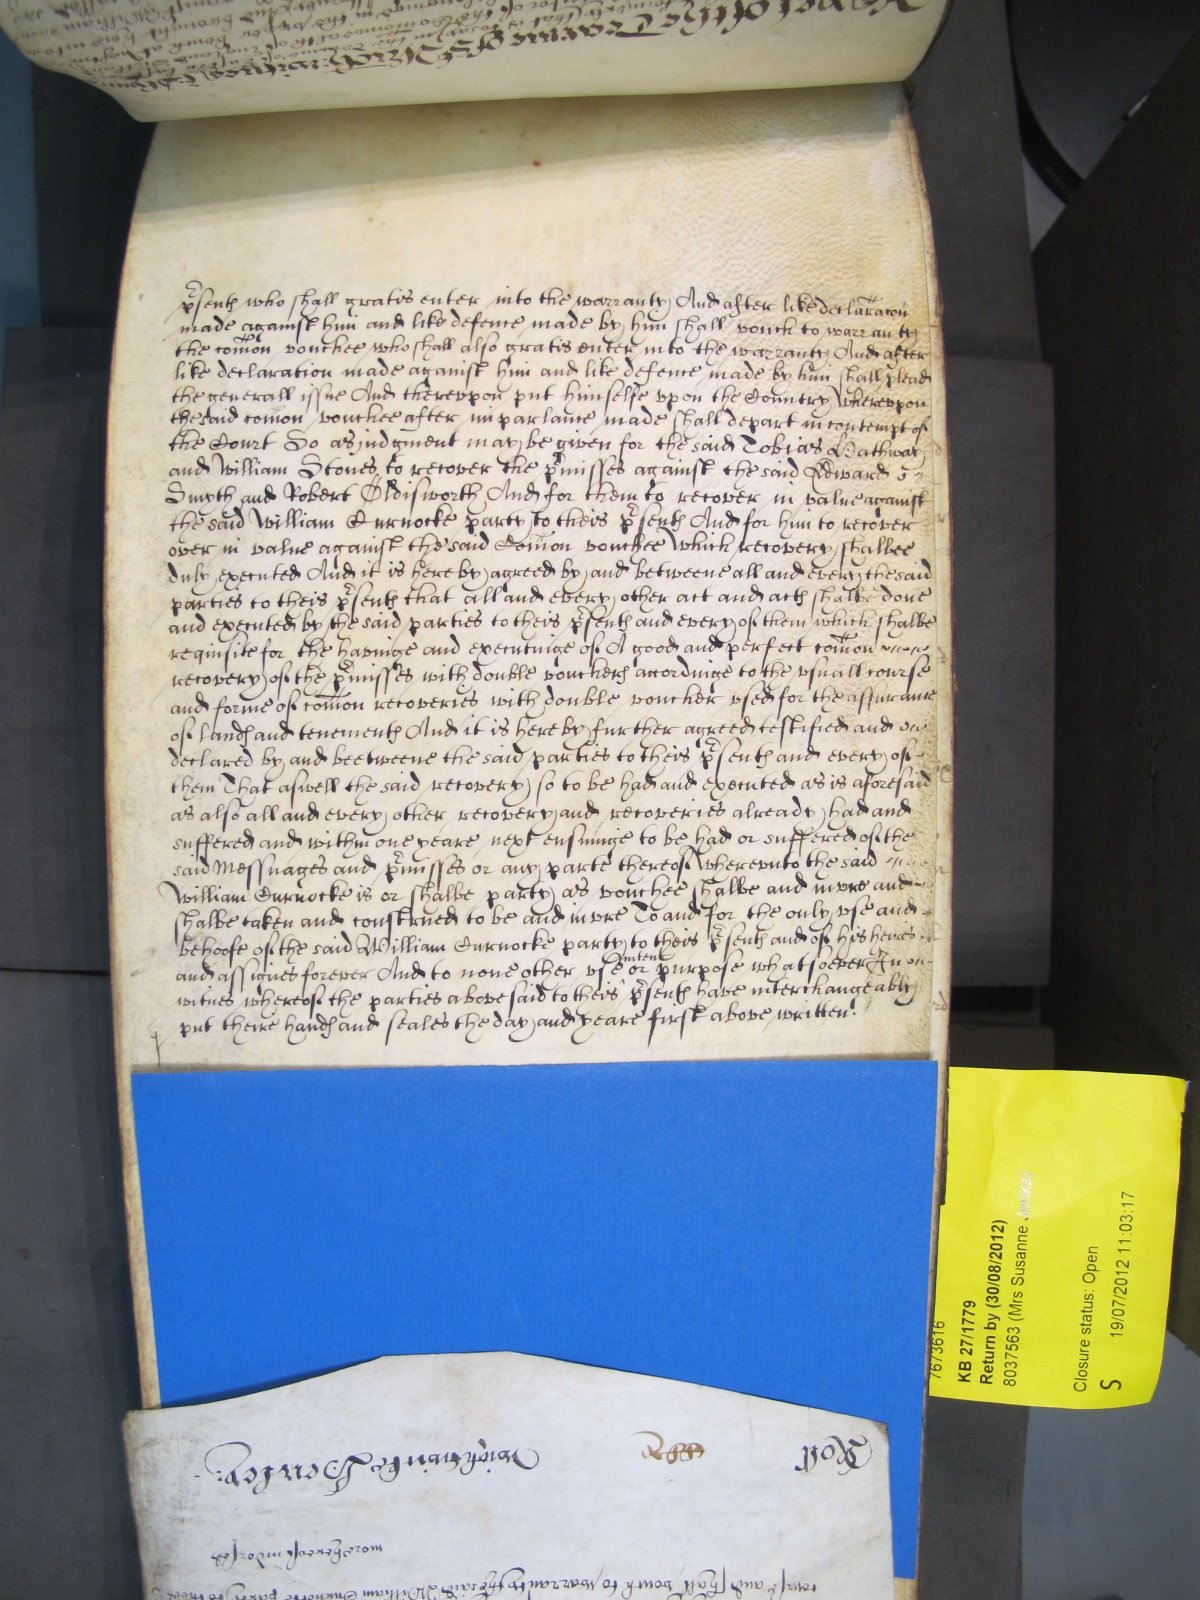 p̃sents who shall gratis enter into the warranty And after like declarac̃on
made against him and like defence made by him shall vouch to warranty
the com̃on vouchee who shall also gratis enter into the warranty And after
like declaration made against him and like defence made by him shall plead
the generall issue And therevpon put himselfe vpon the Country Wherevpon
the said comon vouchee after imparlance made shall depart in contempt of
the Court So as iudgment may be given for the said Tobias Hathway
and William Stones to recover the p̃misses against the said Edward
Smyth and Robert Oldisworth And for them to recover in value against
the said William Curnocke party to theis p̃sents And for him to recover
over in value against the said Com̃on vouchee Which recovery shalbee
duly executed And it is hereby agreed by and betweene all and every the said
parties to theis p̃sents that all and every other act and acts shalbe done
and executed by the said parties to theis p̃sents and every of them which shalbe
requisite for the havinge and executinge of A good and perfect com̃on
recovery of the p̃misses with double vouchers acordinge to the vsuall course
and forme of com̃on recoveries with double voucher vsed for the assurance
of lands and tenements And it is hereby further agreed testified and
declared by and beetweene the said parties to theis p̃sents and every of
them That aswell the said recovery so to be had and executed as is aforesaid
as also all and every other recovery and recoveries already had and
suffered and within one yeare next ensuinge to be had or suffered of the
said Messuages and p̃misses or any parte thereof Wherevnto the said
William Curnocke is or shalbe party as vouchee shalbe and invre and
shalbe taken and construed to be and invre To and for the only vse and
behoofe of the said William Curnocke party to theis p̃sents and of his heires
and assignes forever And to none other vse intent or purpose whatsoever In
witnes whereof the parties abovesaid to theis p̃sents have interchangeably
put theire hands and seales the day and yeare first above written.
7673616
KB 27/1779
Return by (30/08/2012)
8037563 (Mrs Susanne
Closure status: Open
S 19/07/2012 11:03:17
Roll
Wightwicke Henley
more hereof indorsed
and shall vouch to warranty the said William Curnocke party to theis